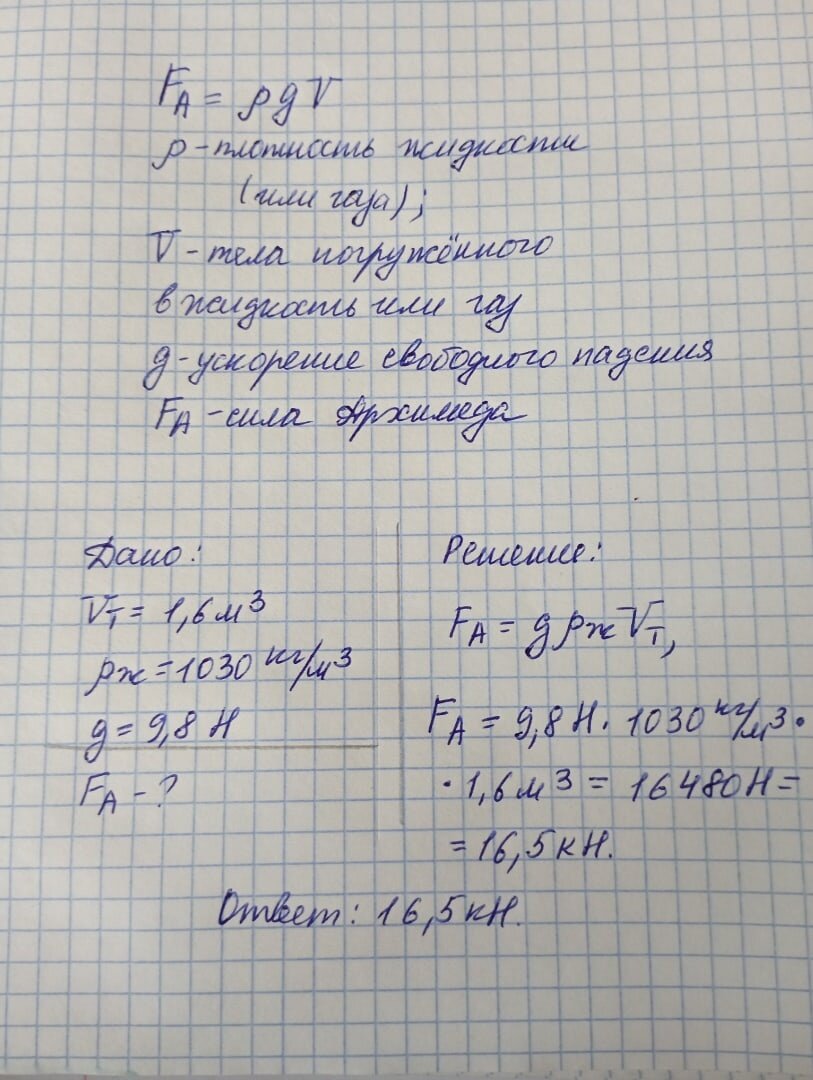 FА = ρgV
ρ - плотность жидкости
(или газа);
V - тела погружённого
в жидкость или газ
g - ускорение свободного падения
FА - сила Архимеда
Дано:
Vт = 1,6 м³
ρж = 1030 кг/м³
g = 9,8 Н
FА - ?
Решение:
FА = gρжVт,
FА = 9,8 Н · 1030 кг/м³ ·
· 1,6 м³ = 16480Н =
= 16,5 кН.
Ответ: 16,5 кН.